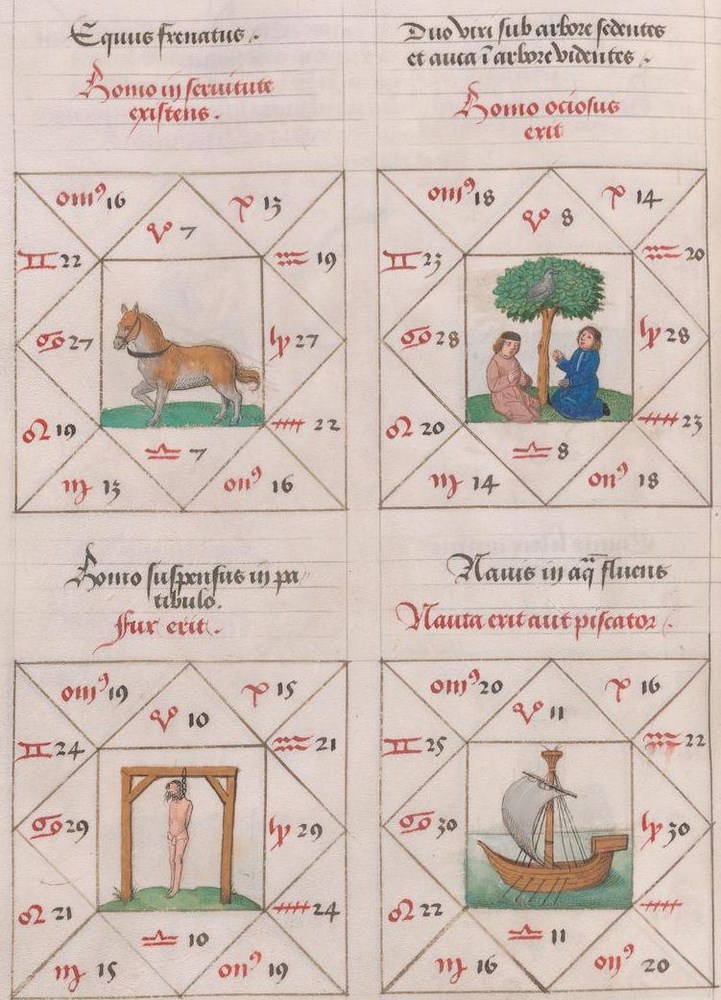 Equus frenatus.
Homo in seruitute
existens.
om⁹ 16
♈ 7
p 13
♊ 22
♒ 19
♋ 27
lp 27
♌ 19
22
♎ 7
♏ 13
on⁹ 16
Duo viri sub arbore sedentes
et auca ī arbore videntes.
Homo ociosus
exit
om⁹ 18
♈ 8
p 14
♊ 23
♒ 20
♋ 28
lp 28
♌ 20
23
♎ 8
♏ 14
on⁹ 18
Homo suspensus in pa
tibulo.
fur erit.
om⁹ 19
♈ 10
p 15
♊ 24
♒ 21
♋ 29
lp 29
♌ 21
24
♎ 10
♏ 15
on⁹ 19
Nauis in aq̄ fluens
Nauta erit aut piscator.
om⁹ 20
♈ 11
p 16
♊ 25
♒ 22
♋ 30
lp 30
♌ 22
♎ 11
♏ 16
on⁹ 20